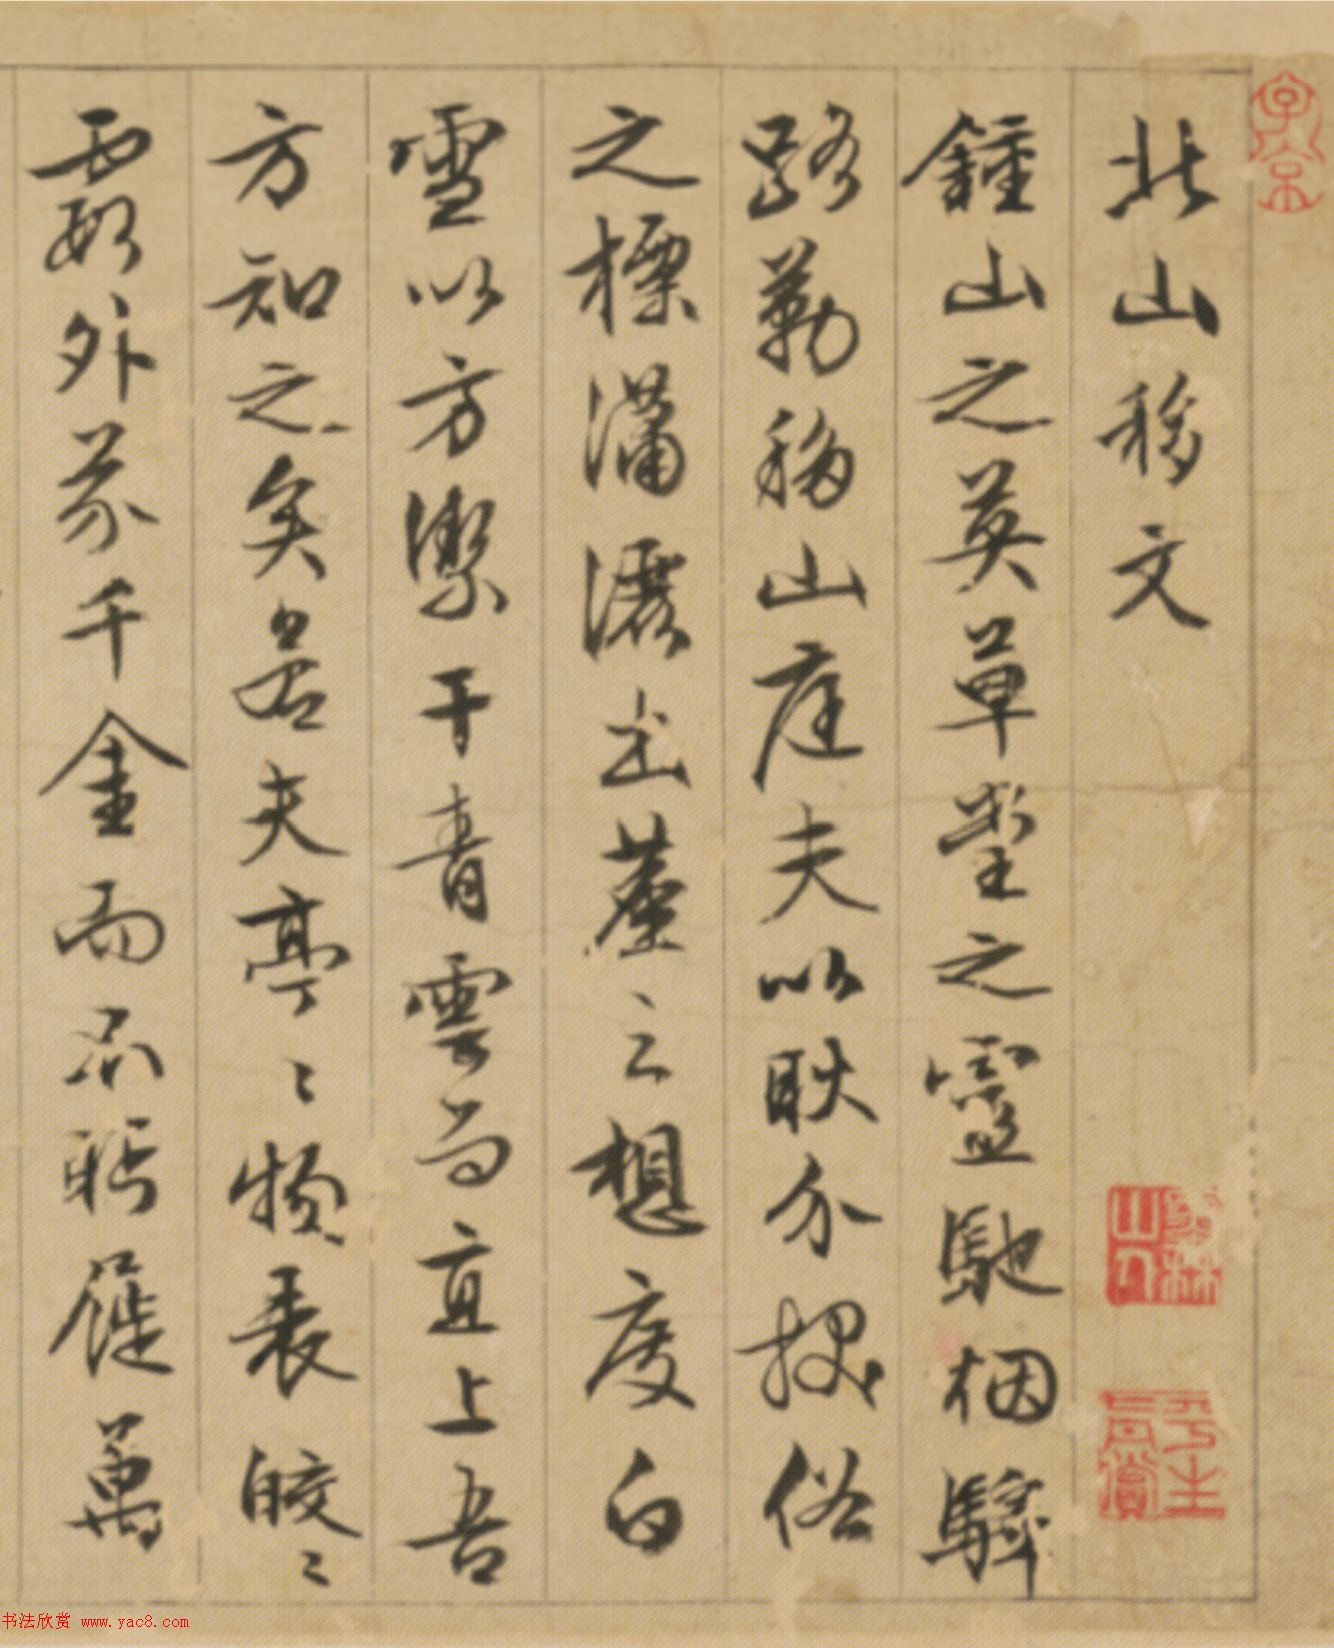 子京
北山移文
墨林山人
平生真賞
鍾山之英草堂之靈馳烟驛
路勒移山庭夫以耿介拔俗
之標瀟灑出塵之想度白
雪以方潔干青雲而直上吾
方知之矣若夫亭〻物表皎〻
霞外芥千金而不眄屣萬
书法欣赏 www.yac8.com